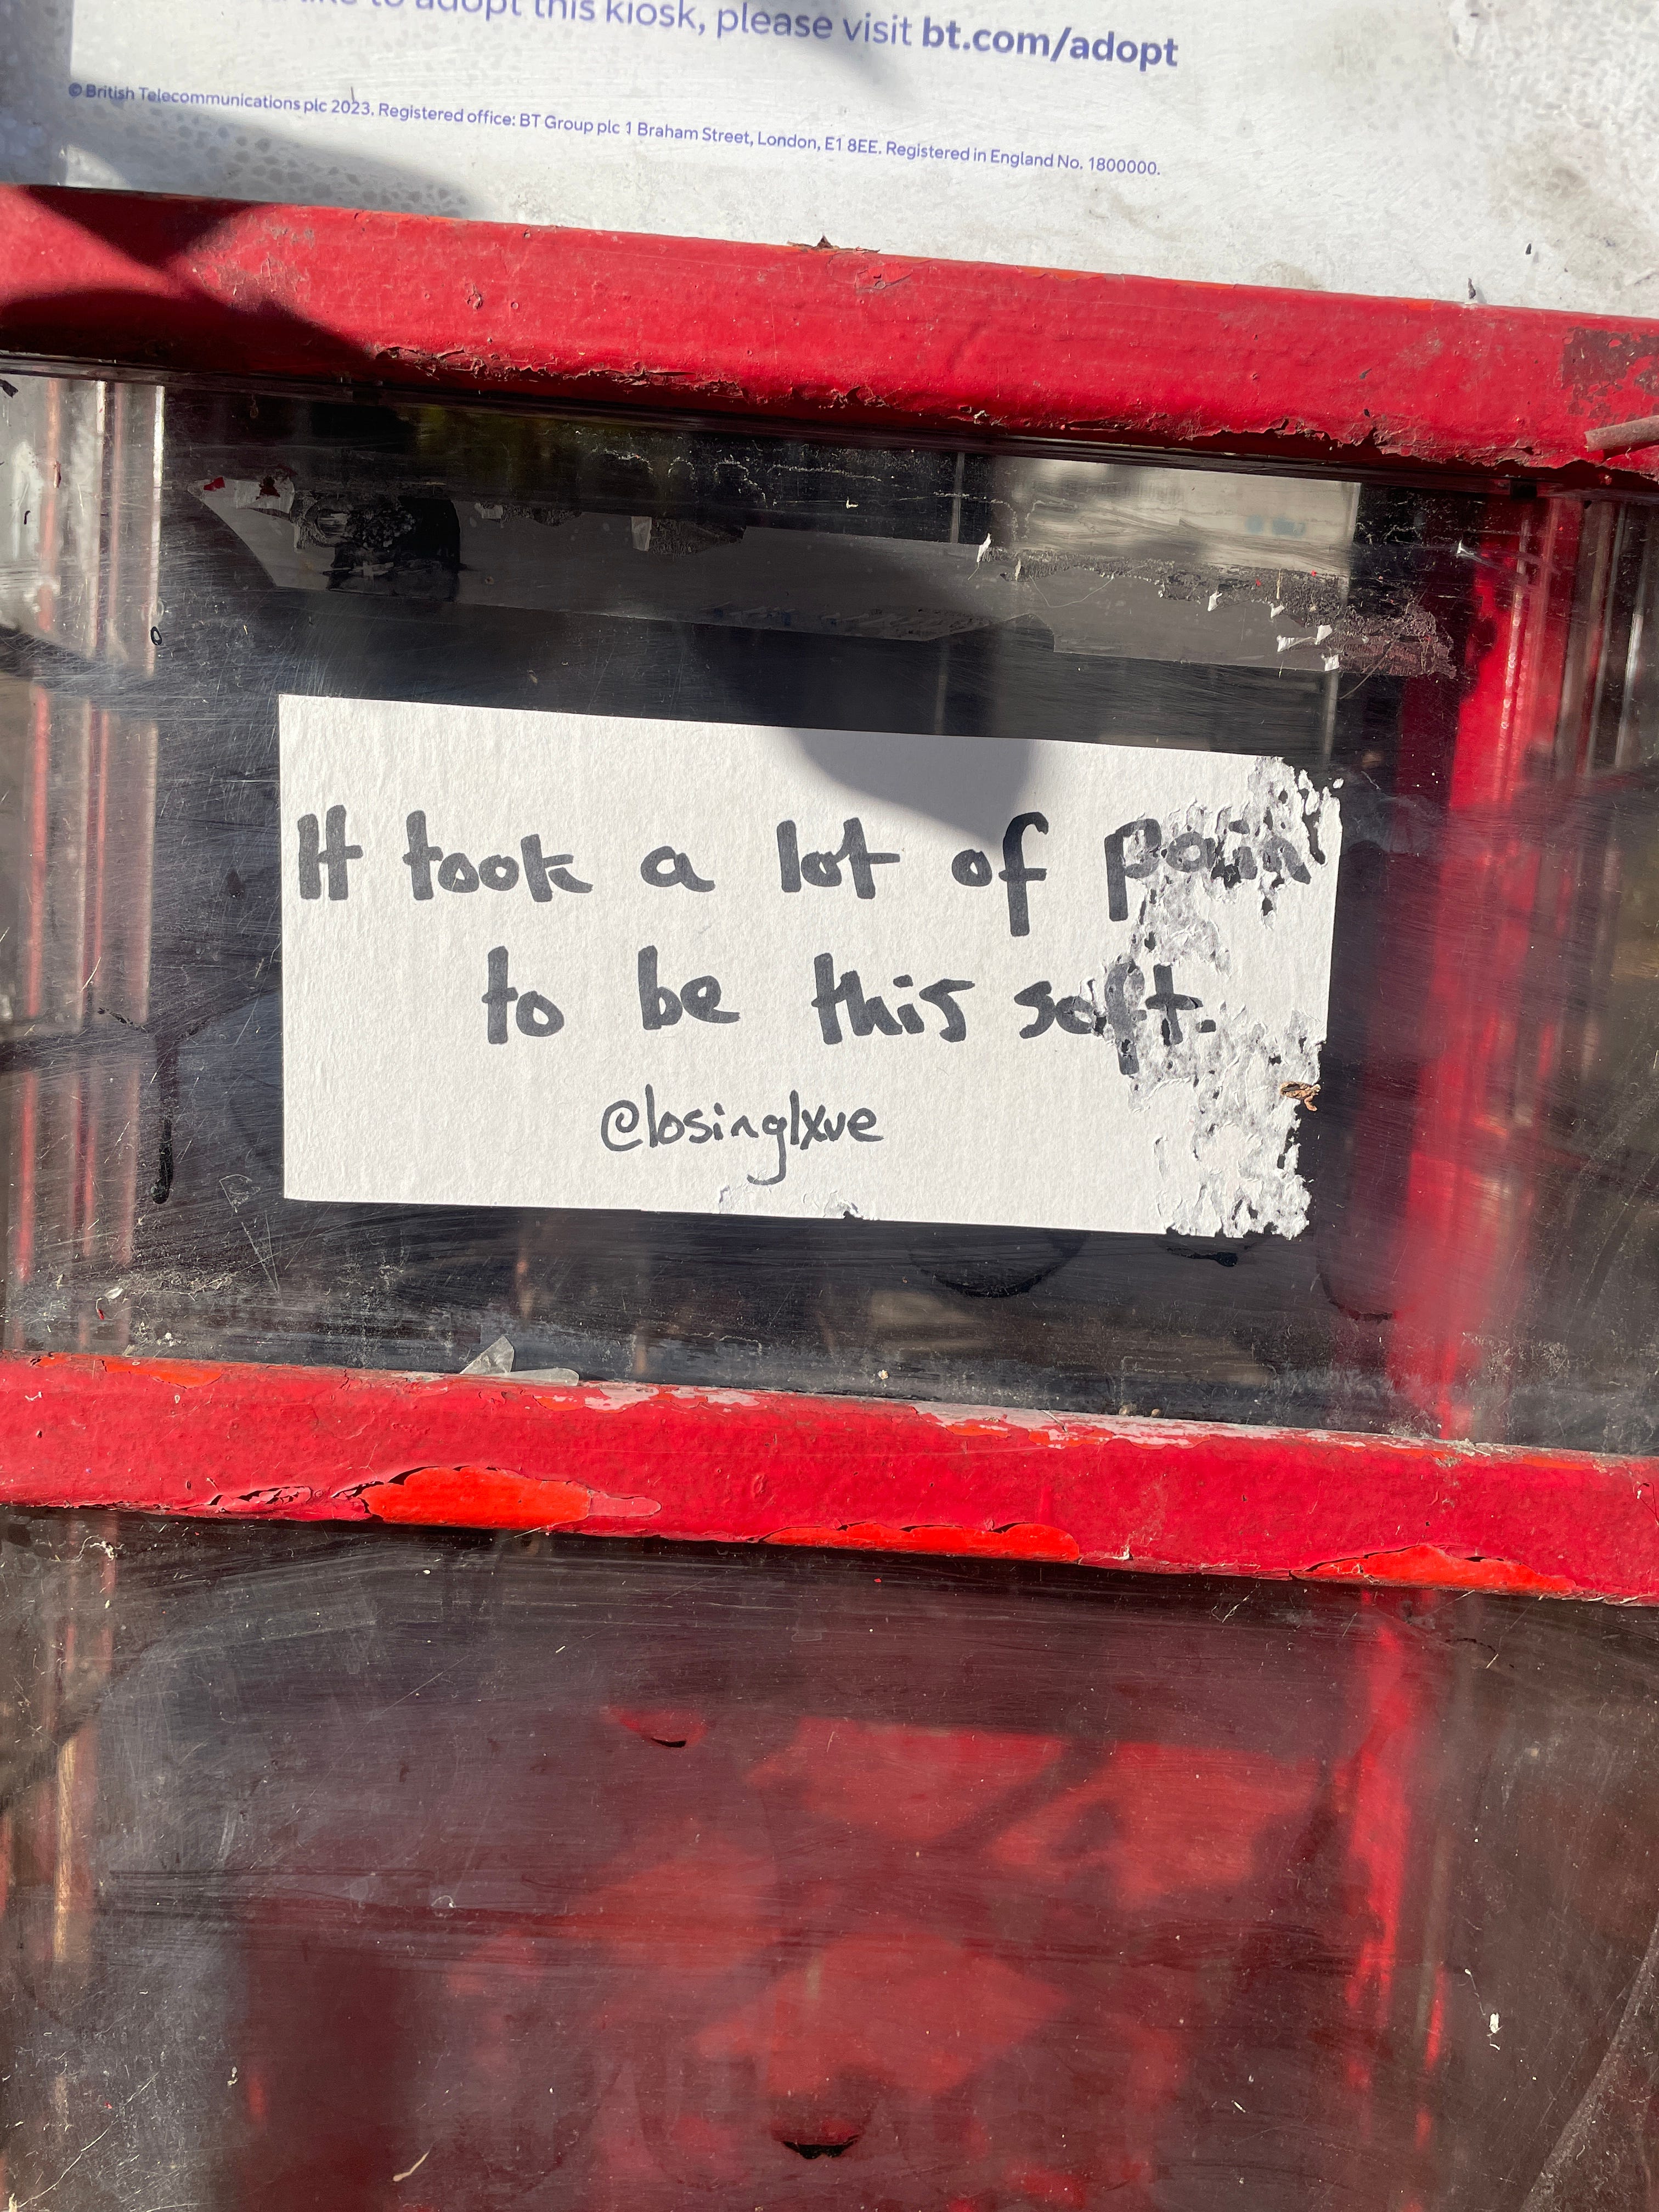 to adopt this kiosk, please visit bt.com/adopt
© British Telecommunications plc 2023. Registered office: BT Group plc 1 Braham Street, London, E1 8EE. Registered in England No. 1800000.
It took a lot of pain
to be this soft.
@losinglxve